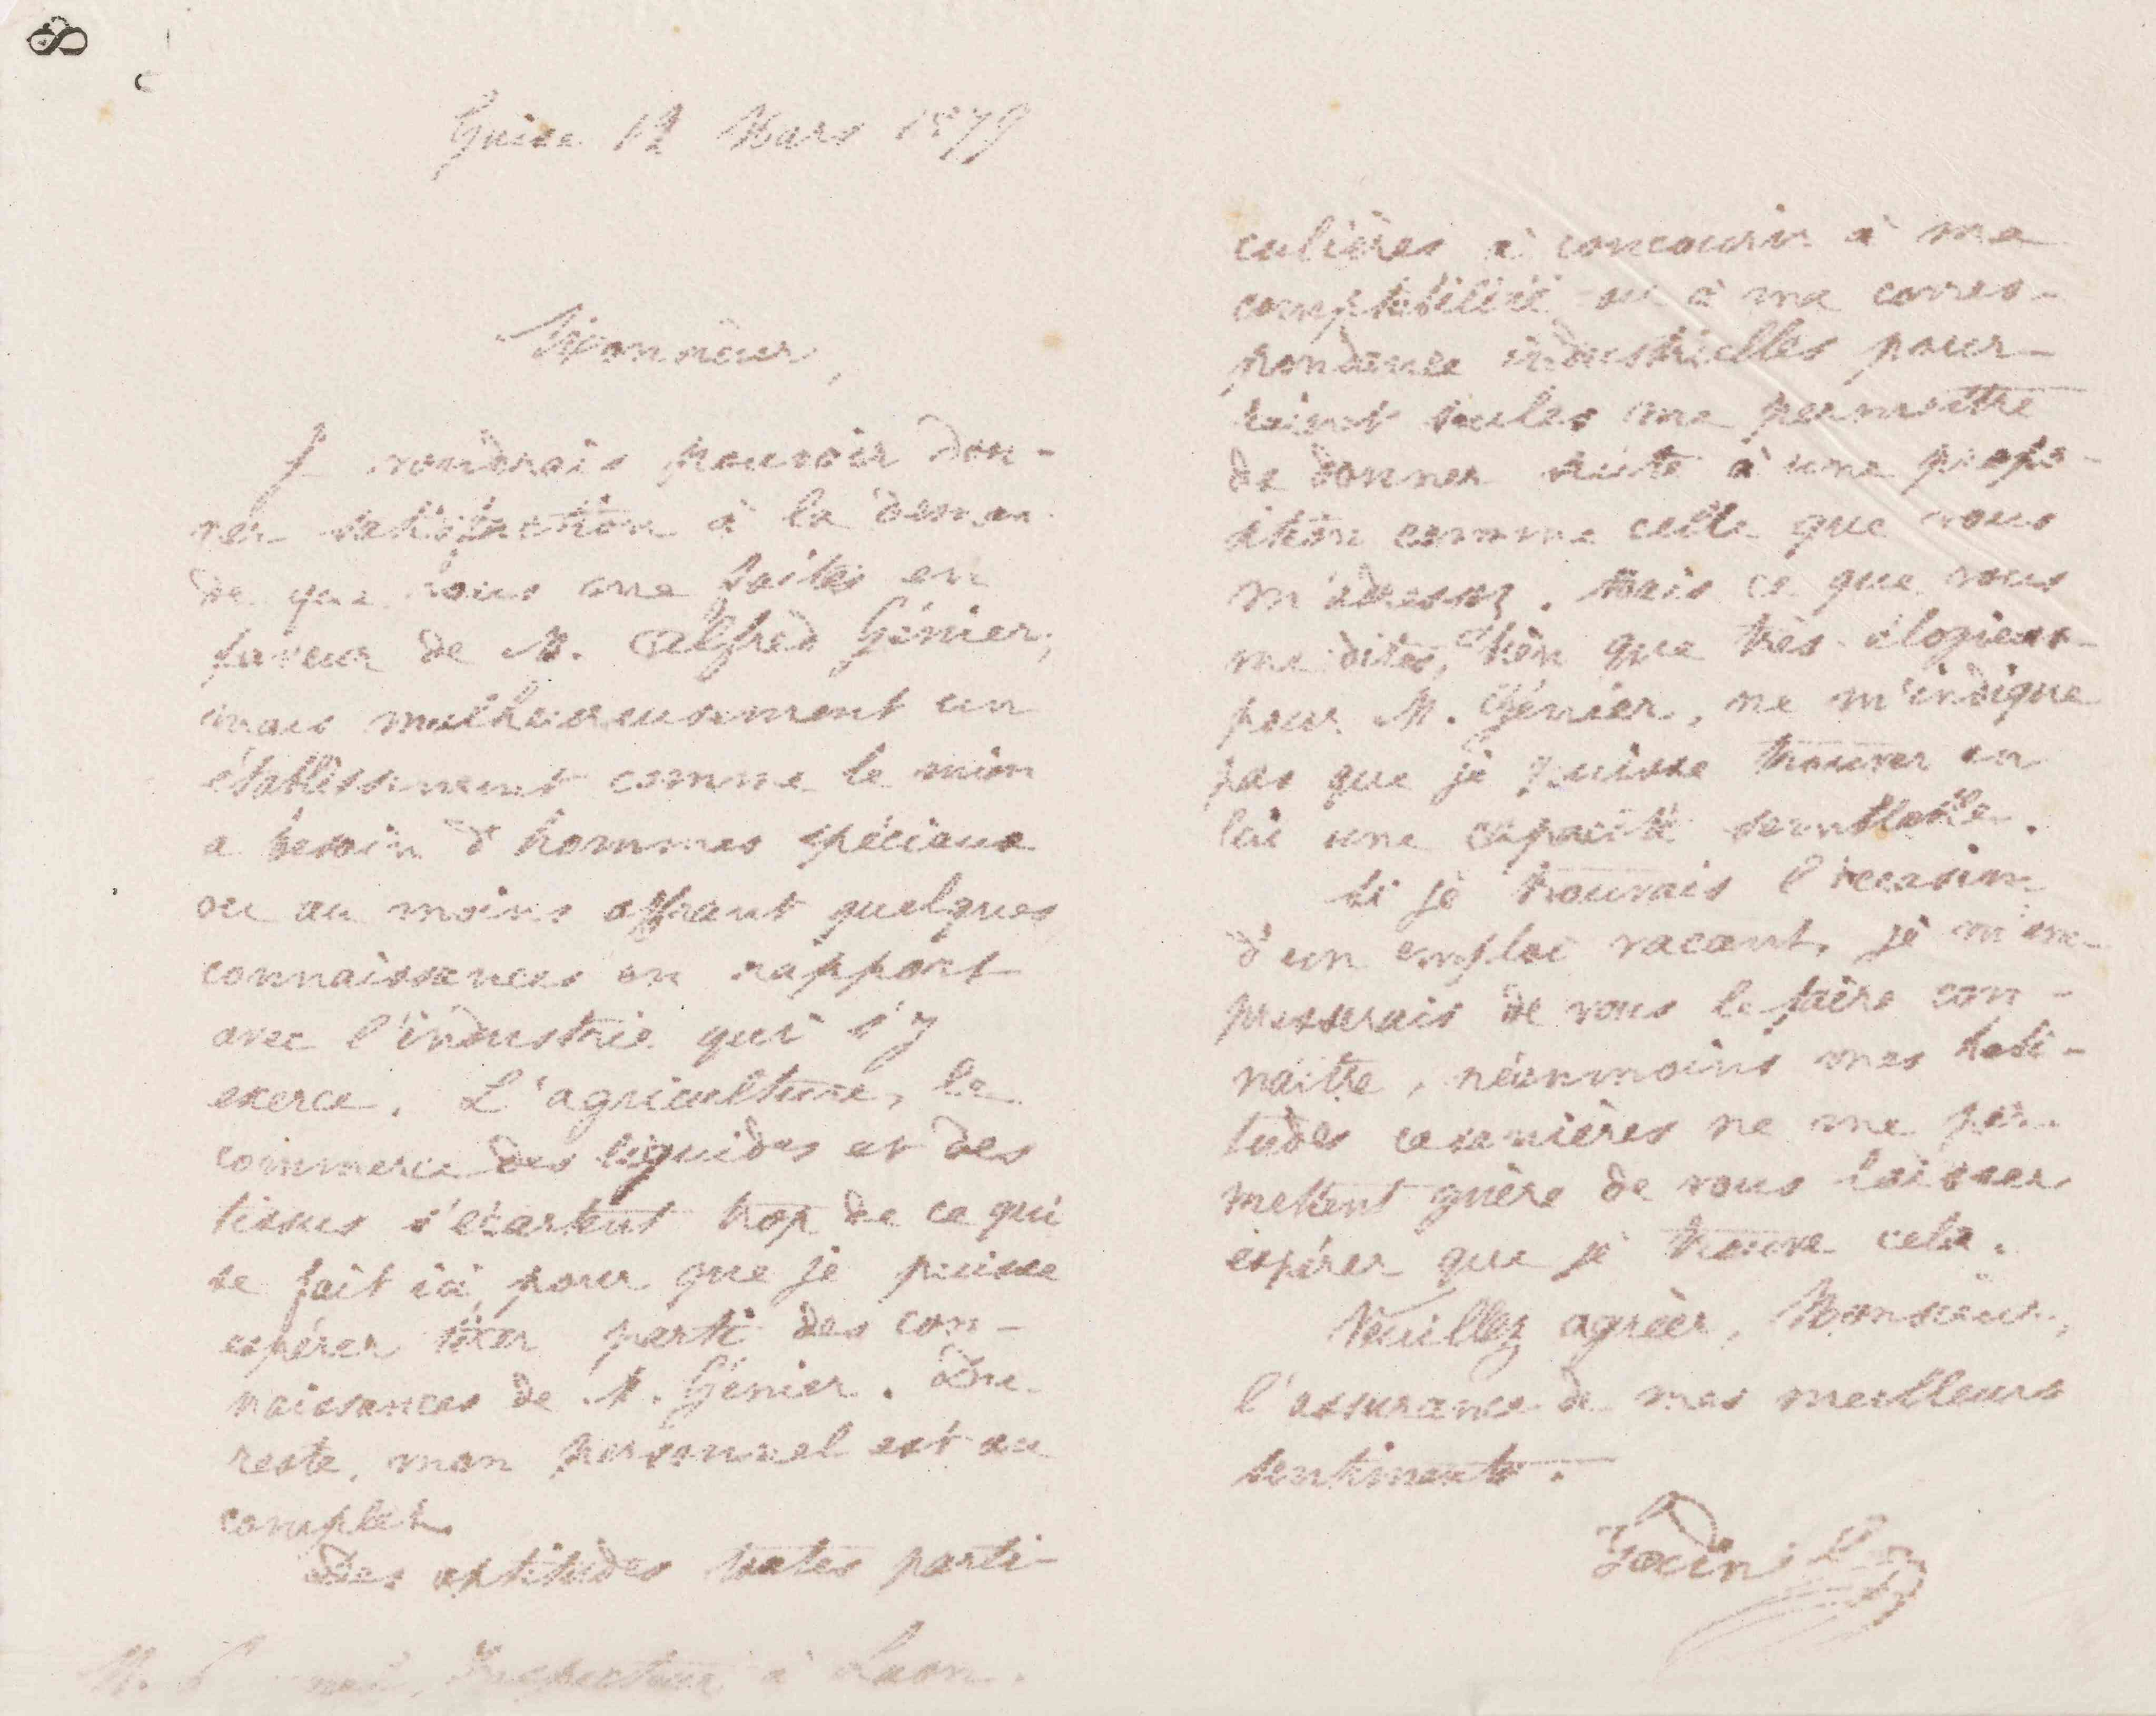 Guise 12 Mars 1879
Monsieur,
Je voudrais pouvoir don-
ner satisfaction à la deman-
de que vous me faites en
faveur de M. Alfred Génier,
mais malheureusement un
établissement comme le mien
a besoin d'hommes spéciaux
ou au moins offrant quelques
connaissances en rapport
avec l'industrie qui s'y
exerce. L'agriculture, le
commerce des liquides et des
tissus s'écartent trop de ce qui
se fait ici, pour que je puisse
espérer tirer parti des con-
naissances de M. Génier. Du
reste, mon personnel est au
complet.
Des aptitudes toutes parti-
M. Inspecteur à Laon.
culières à concourir à ma
comptabilité ou à ma corres-
pondance industrielles pour-
raient seules me permettre
de donner suite à une propo-
sition comme celle que vous
m'adressez. Mais ce que vous
me dites, bien que très-élogieux
pour M. Génier, ne m'indique
pas que je puisse trouver en
lui une capacité semblable.
Si je trouvais l'occasion
d'un emploi vacant, je m'em-
presserais de vous le faire con-
naître, néanmoins mes habi-
tudes casanières ne me per-
mettent guère de vous laisser
espérer que je trouve cela.
Veuillez agréer, Monsieur,
l'assurance de mes meilleurs
sentiments.
Godin